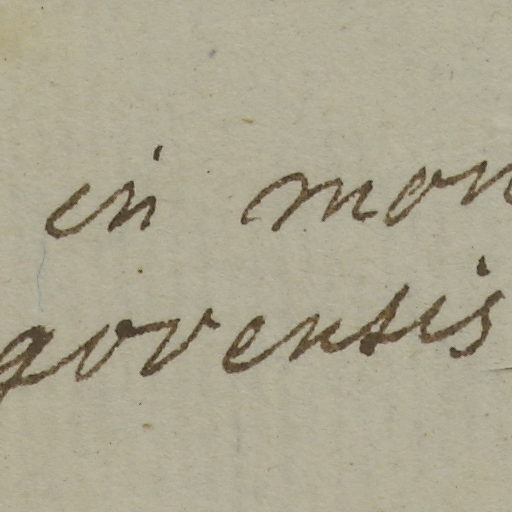 in mon
govensis